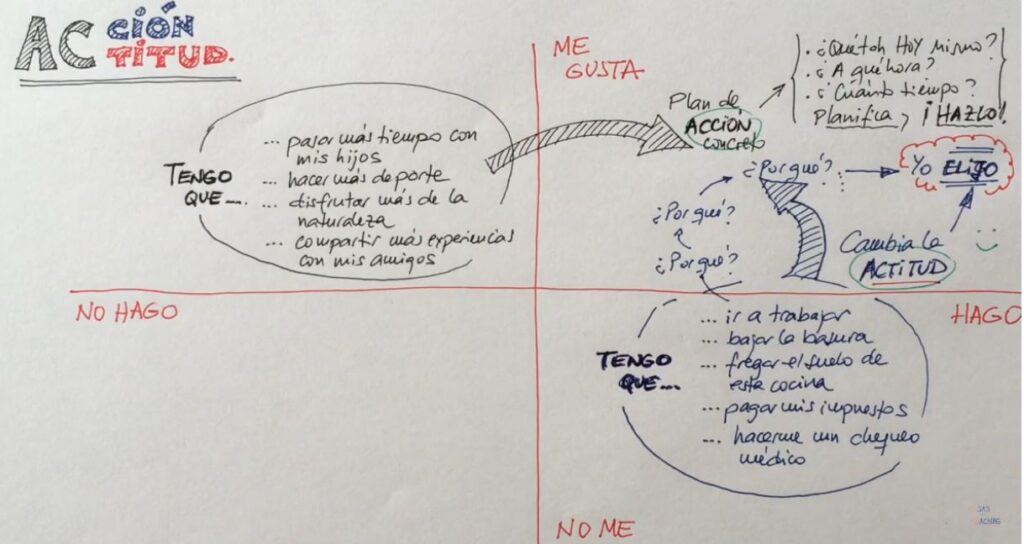 ACción
ACTITUD.
ME
GUSTA
TENGO
QUE....
... pasar más tiempo con
mis hijos
... hacer más deporte
... disfrutar más de la
naturaleza
... compartir más experiencias
con mis amigos
Plan de
ACCIÓN
concreto
HOY mismo?
. ¿A qué hora?
. ¿Cuánto tiempo?
Planifica, ¡HAZLO!
¿Por qué?
¿Por qué?
¿Por qué?
Yo ELIJO
Cambia la
ACTITUD
NO HAGO
HAGO
TENGO
QUE....
... ir a trabajar
... bajar la basura
... fregar el suelo de
esta cocina
... pagar mis impuestos
... hacerme un chequeo
médico
NO ME